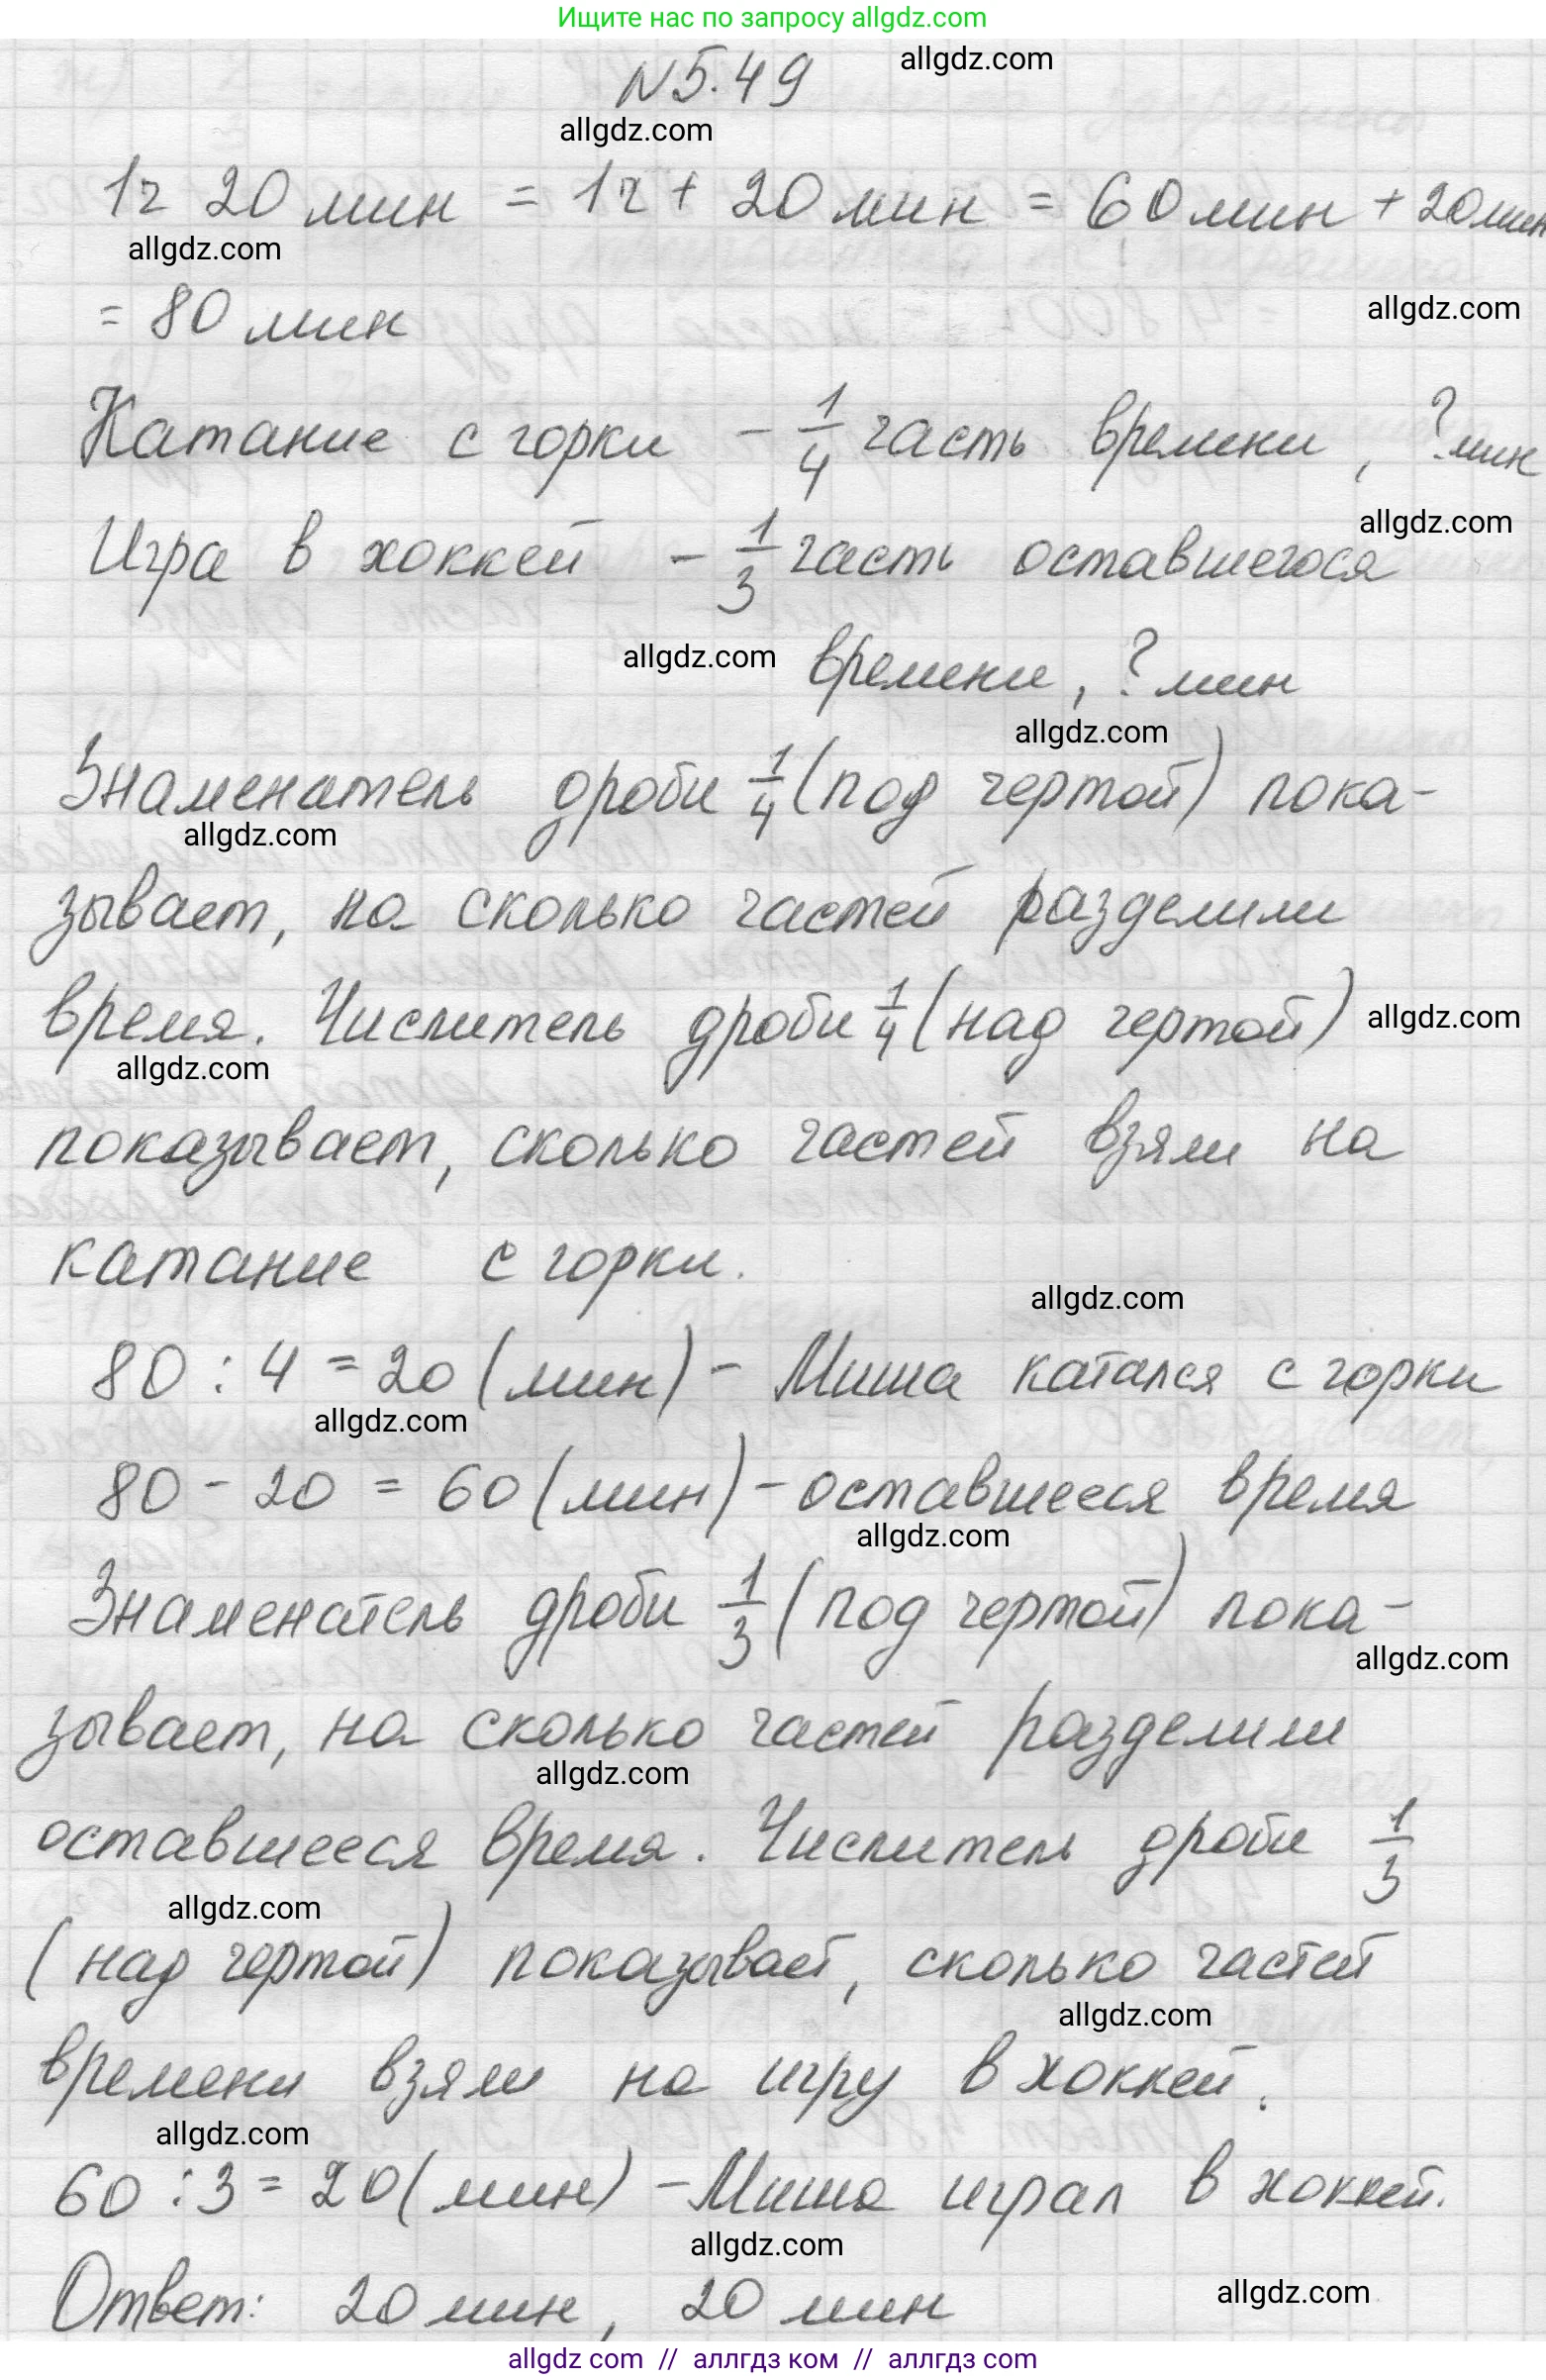 Ищите нас по запросу allgdz.com
№5.49 allgdz.com
allgdz.com
1ч 20 мин = 1ч + 20 мин = 60 мин + 20 мин
allgdz.com
= 80 мин allgdz.com
Катание с горки - 1/4 часть времени, ? мин
allgdz.com
Игра в хоккей - 1/3 часть оставшегося
allgdz.com времени, ? мин
allgdz.com
Знаменатель дроби 1/4 (под чертой) пока-
allgdz.com
зывает, на сколько частей разделили
время. Числитель дроби 1/4 (над чертой) allgdz.com
allgdz.com
показывает, сколько частей взяли на
катание с горки.
allgdz.com
80 : 4 = 20 (мин) - Миша катался с горки
allgdz.com
80 - 20 = 60 (мин) - оставшееся время
allgdz.com
Знаменатель дроби 1/3 (под чертой) пока-
allgdz.com
зывает, на сколько частей разделили
allgdz.com
оставшееся время. Числитель дроби 1/3
allgdz.com
(над чертой) показывает, сколько частей
allgdz.com
времени взяли на игру в хоккей.
allgdz.com
60 : 3 = 20 (мин) - Миша играл в хоккей.
allgdz.com
Ответ: 20 мин, 20 мин allgdz.com
allgdz com // аллгдз ком // аллгдз com